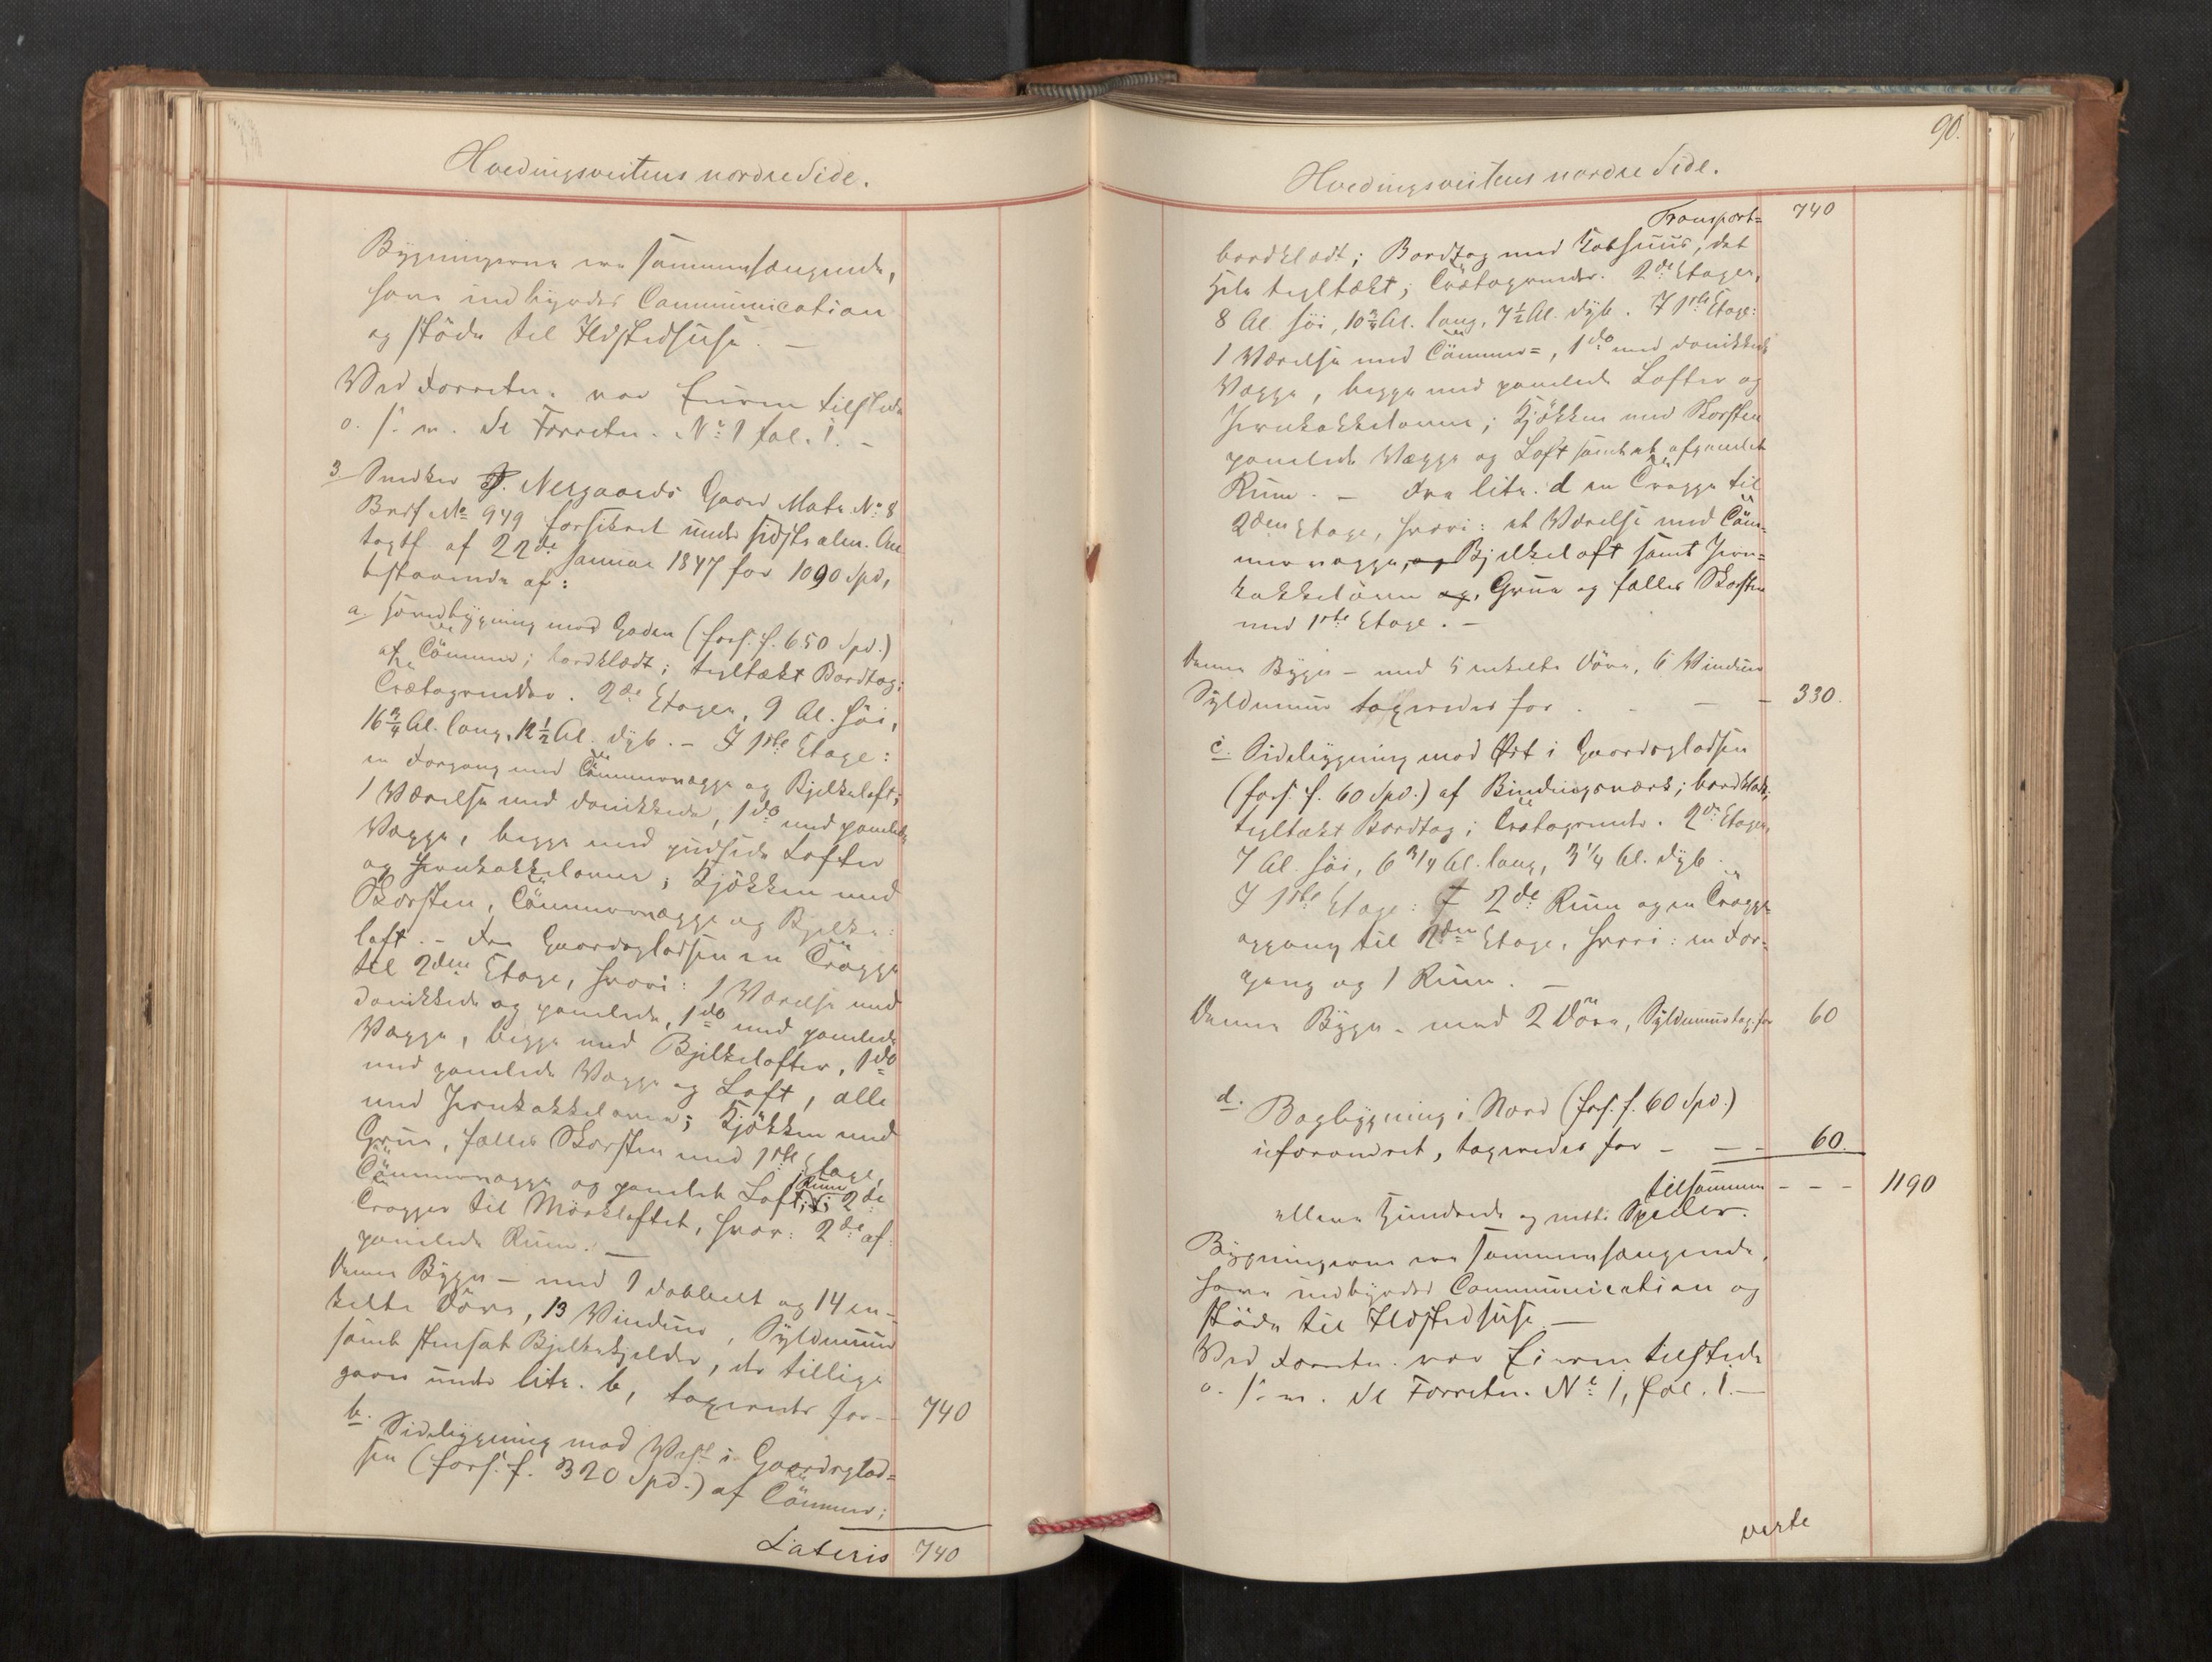 Hvedingsveitens nordre Side.
Bygningerne ere sammenhængende,
have indbyrdes Communication
og støde til Ildstedhuse. —
Ved Forretn. var Eieren tilstede
o. s. v. se Forretn. No 1 fol. 1. —
3 Snedker P. Nergaards Gaard Matr. No 8
Brdf No 949 forsikret under sidste alm. Om
taxtf. af 22de Januar 1847 for 1090 Spd,
bestaaende af:
a. Hovedbygning mod Gaden (fors. f. 650 Spd.)
af Tømmer; bordklædt; tegltækt Bordtag;
Trætagrender. 2de Etager, 9 Al. høi,
16 3/4 Al. lang, 12 1/2 Al. dyb. — I 1ste Etage:
en Forgang med Tømmervægge og Bjelkeloft;
1 Værelse med donikkede, 1 do med panelede
Vægge, begge med gibsede Lofter
og Jernkakkelovne; Kjøkken med
Skorsten, Tømmervægge og Bjelke-
loft. — Fra Gaardspladsen en Trappe
til 2den Etage, hvori: 1 Værelse med
donikkede og panelede, 1 do med panelede
Vægge, begge med Bjelkelofter, 1 do
med panelede Vægge og Loft, alle
med Jernkakkelovne; Kjøkken med
Grue, fælles Skorsten med 1ste Etage,
Tømmervægge og panelet Loft; 1 Rum; 2de
Trapper til Mørkloftet, hvor: 2de af-
panelede Rum. —
Denne Bygn — med 1 dobbelt og 14 en-
kelte Døre, 13 Vinduer, Syldmuur
samt stensat Bjelkekjelder, der tillige
gaar under litr. b, taxeredes for — 740
b. Sidebygning mod Vest i Gaardsplad-
sen (fors. f. 320 Spd.) af Tømmer;
Lateris 740
90.
Hvedingsveitens nordre Side.
Transport= 740
bordklædt; Bordtag med Kobhuus, det
Hele tegltækt; Trætagrender. 2de Etager,
8 Al. høi, 10 3/4 Al. lang, 7 1/2 Al. dyb. I 1ste Etage:
1 Værelse med Tømmer=, 1 do med donikkede
Vægge, begge med panelede Lofter og
Jernkakkelovne; Kjøkken med Skorsten
panelede Vægge og Loft samt et afpanelet
Rum. — Fra litr. d en Trappe til
2den Etage, hvori: et Værelse med Tøm-
mervægge, og Bjelkeloft samt Jern=
kakkelovn og, Grue og fælles Skorsten
med 1ste Etage. —
Denne Bygn — med 5 enkelte Døre, 6 Vinduer
Syldmuur taxeredes for — 330.
c. Sidebygning mod Øst i Gaardspladsen
(fors. f. 60 Spd.) af Bindingsværk; bordklædt;
tegltækt Bordtag; Trætagrende. 2de Etager,
7 Al. høi, 6 3/4 Al. lang, 3 1/4 Al. dyb.
I 1ste Etage: 2de Rum og en Trappe
opgang til 2den Etage, hvori: en For-
gang og 1 Rum. —
Denne Bygn — med 2 Døre, Syldmuur tax. for 60
d. Bagbygning i Nord (fors. f. 60 Spd.)
uforandret, taxeredes for — — — 60.
tilsammen — — — 1190
ellleve Hundrede og nitti Specier.
Bygningerne ere sammenhængende,
have indbyrdes Communication og
støde til Ildstedhuse. —
Ved Forretn. var Eieren tilstede
o. s. v. se Forretn. No 1, fol. 1. —
verte